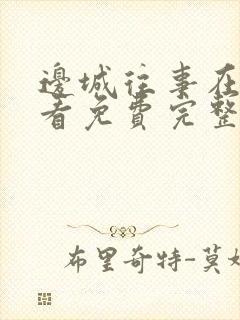 邊城往事在
看免費完整
布里奇特-莫